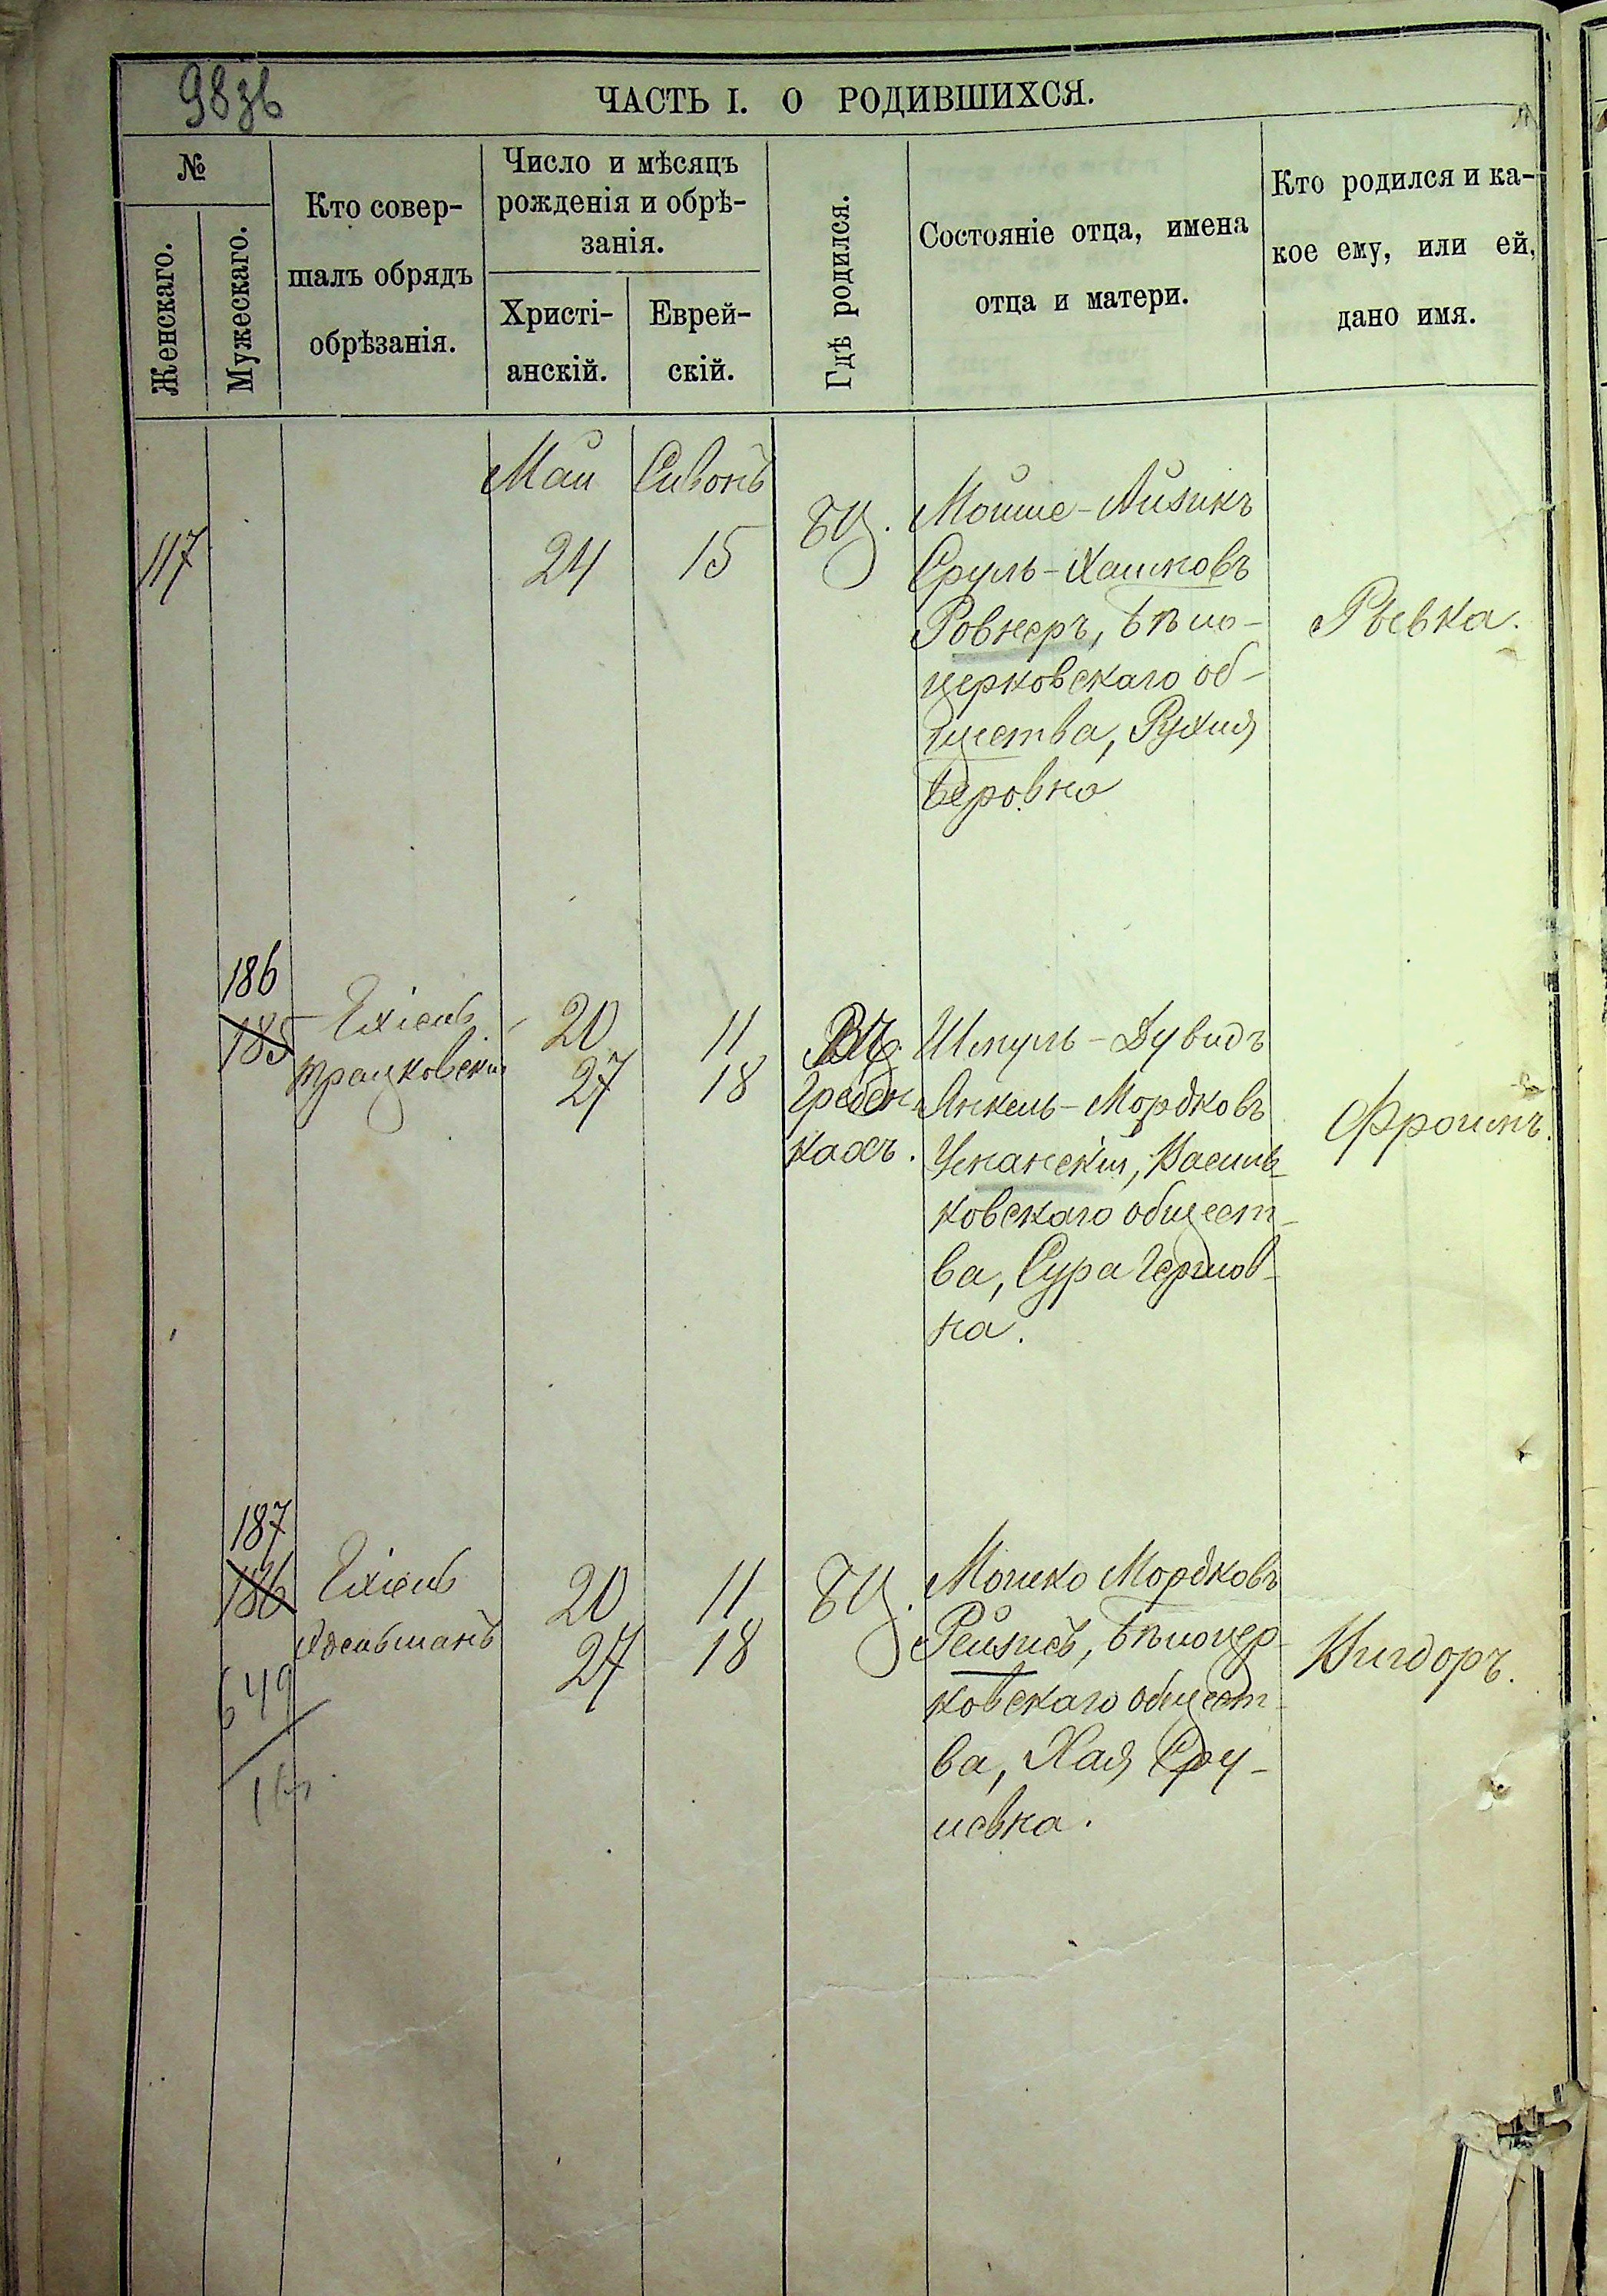 98зв
ЧАСТЬ I. О РОДИВШИХСЯ.
№
Женскаго.
Мужескаго.
Кто совер-
шалъ обрядъ
обрѣзанія.
Число и мѣсяцъ
рожденія и обрѣ-
занія.
Христі-
анскій.
Еврей-
скій.
Гдѣ родился.
Состояніе отца, имена
отца и матери.
Кто родился и ка-
кое ему, или ей,
дано имя.
Май Сивонъ
117
24
15
БЦ.
Мойше-Айзикъ
Сруль-Хашковъ
Ровнеръ, Бѣло-
церковскаго об-
щества, Рухля
Беровна
Рывка.
186
185
Ехіель
Трацковскій
20
27
11
18
Гребен-
кахъ.
Шмуль-Дувидъ
Янкель-Мордковъ
Уманскій, Василь-
ковскаго общест-
ва, Сура Гершов-
на.
Фроимъ.
187
186
Ехіель
Эдельманъ
20
27
11
18
БЦ.
Мошко Мордковъ
Рейзисъ, Бѣлоцер-
ковскаго общест-
ва, Хая Сру-
левна.
Вигдоръ.
649